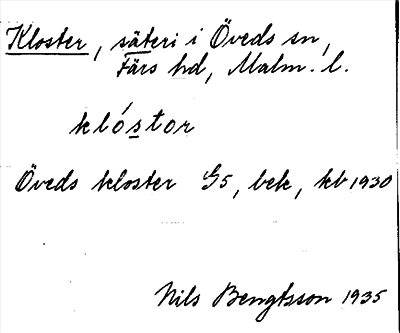 Kloster, säteri i Öveds sn,
Färs hd, Malm. l.
klóstor
Öveds kloster G5, bek, kb 1930
Nils Bengtsson 1935